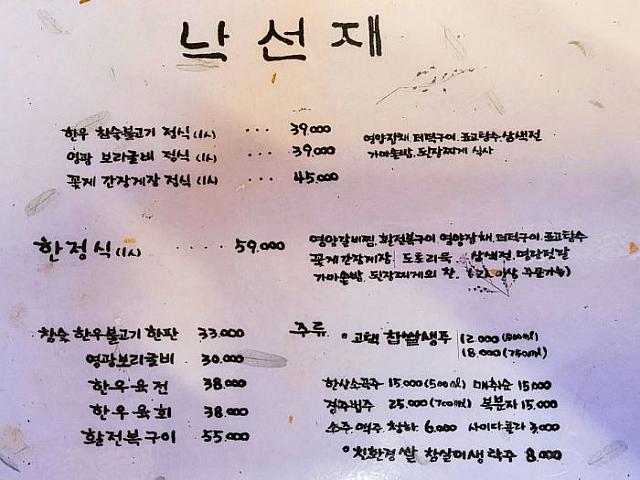 낙선재
한우 참숯불고기 정식 (1人) ··· 39.000
영광 보리굴비 정식 (1人) ··· 39.000
꽃게 간장게장 정식 (1人) ·· 45.000
영양잡채. 더덕구이. 표고탕수. 삼색전
가마솥밥. 된장찌개 식사
한정식 (1人) ····· 59.000
영양갈비찜. 황전복구이. 영양잡채. 더덕구이. 표고탕수
꽃게간장게장 도토리묵. 삼색전. 명란젓갈
가마솥밥. 된장찌개외 찬. (2人 이상 주문가능)
참숯 한우불고기 한판 33.000
영광보리굴비 30.000
한우육전 38.000
한우육회 38.000
황전복구이 55.000
주류 · 고택 찹쌀생주 12.000 (500ml)
18.000 (750ml)
한산소곡주 15.000 (500ml) 매취순 15.000
경주법주 25.000 (700ml) 복분자 15.000
소주. 맥주. 청하 6.000 사이다 콜라 3.000
· 친환경 쌀 참살이생 탁주 8.000